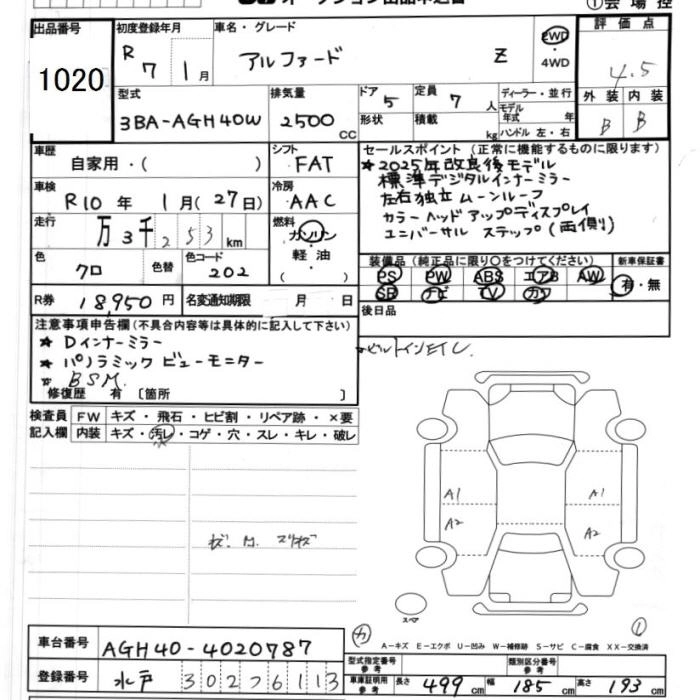 出品番号
1020
初度登録年月
R 7 1月
車名・グレード
アルファード Z
2WD
・
4WD
評価点
4.5
外装 内装
B B
型式
3BA-AGH40W
排気量
2500 CC
ドア 5
形状
定員 7 人
積載 kg
ディーラー・並行
モデル
年式 年
ハンドル 左・右
車歴
自家用・( )
シフト
FAT
車検
R10年 1月(27日)
冷房
AAC
走行
万3千253km
燃料
ガソリン
・
軽油
( )
色
クロ
色替
色コード
202
R券 18,950円
名変通知期限 月 日
セールスポイント(正常に機能するものに限り)
★2025年改良後モデル
標準デジタルインナーミラー
左右独立ムーンルーフ
カラーヘッドアップディスプレイ
ユニバーサルステップ(両側)
装備品(純正品に限り○をつけてください) 新車保証書
PS PW ABS エアB AW
SR ナビ TV カワ
有・無
後日品
ビルトインETC
注意事項申告欄(不具合内容等は具体的に記入して下さい)
★Dインナーミラー
★パノラミックビューモニター
★BSM
修復歴 有 〔箇所 〕
検査員 FW キズ・飛石・ヒビ割・リペア跡・×要
記入欄 内装 キズ・汚レ・コゲ・穴・スレ・キレ・破レ
A1 A1
A2 A2
スペア
A-キズ E-エクボ U-凹み W-補修跡 S-サビ C-腐食 XX-交換済
車台番号 AGH40-4020787
登録番号 水戸 302 76113
型式指定番号
参考
類別区分番号
参考
車庫証明用
参考
長さ 499cm 幅 185cm 高さ 193cm